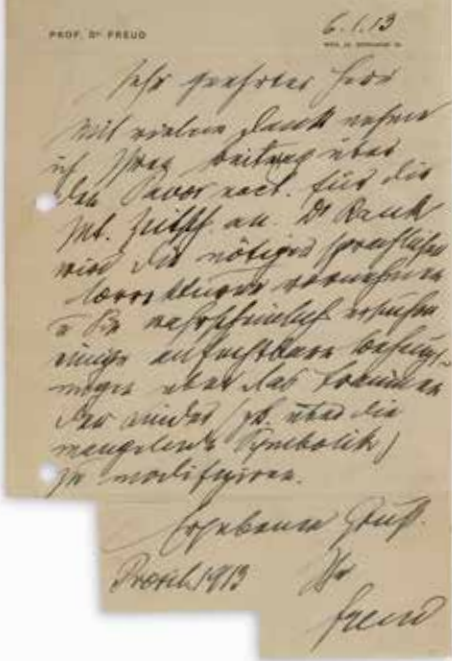 PROF. Dr FREUD
6.1.13
WIEN, IX. BERGGASSE 19.
Sehr geehrter Herr
Mit vielem Dank nehme
ich Ihren Beitrag über
den Pavor noct. für die
Int. Zeitsch. an. Dr Rank
wird die nötigen sprachlichen
Correkturen vornehmen
u Sie wahrscheinlich ersuchen
einige anfechtbare
über das Träumen
der Kinder (zB. über die
mangelnde Symbolik)
zu modifiziren.
Ergebenen Gruß.
1913
Ihr
Freud